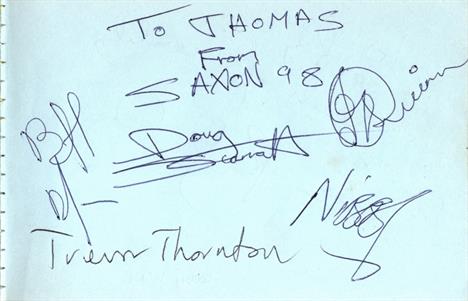 TO THOMAS
From
SAXON 98
Biff
Doug
Scarratt
Nibbs
Trevor Thornton